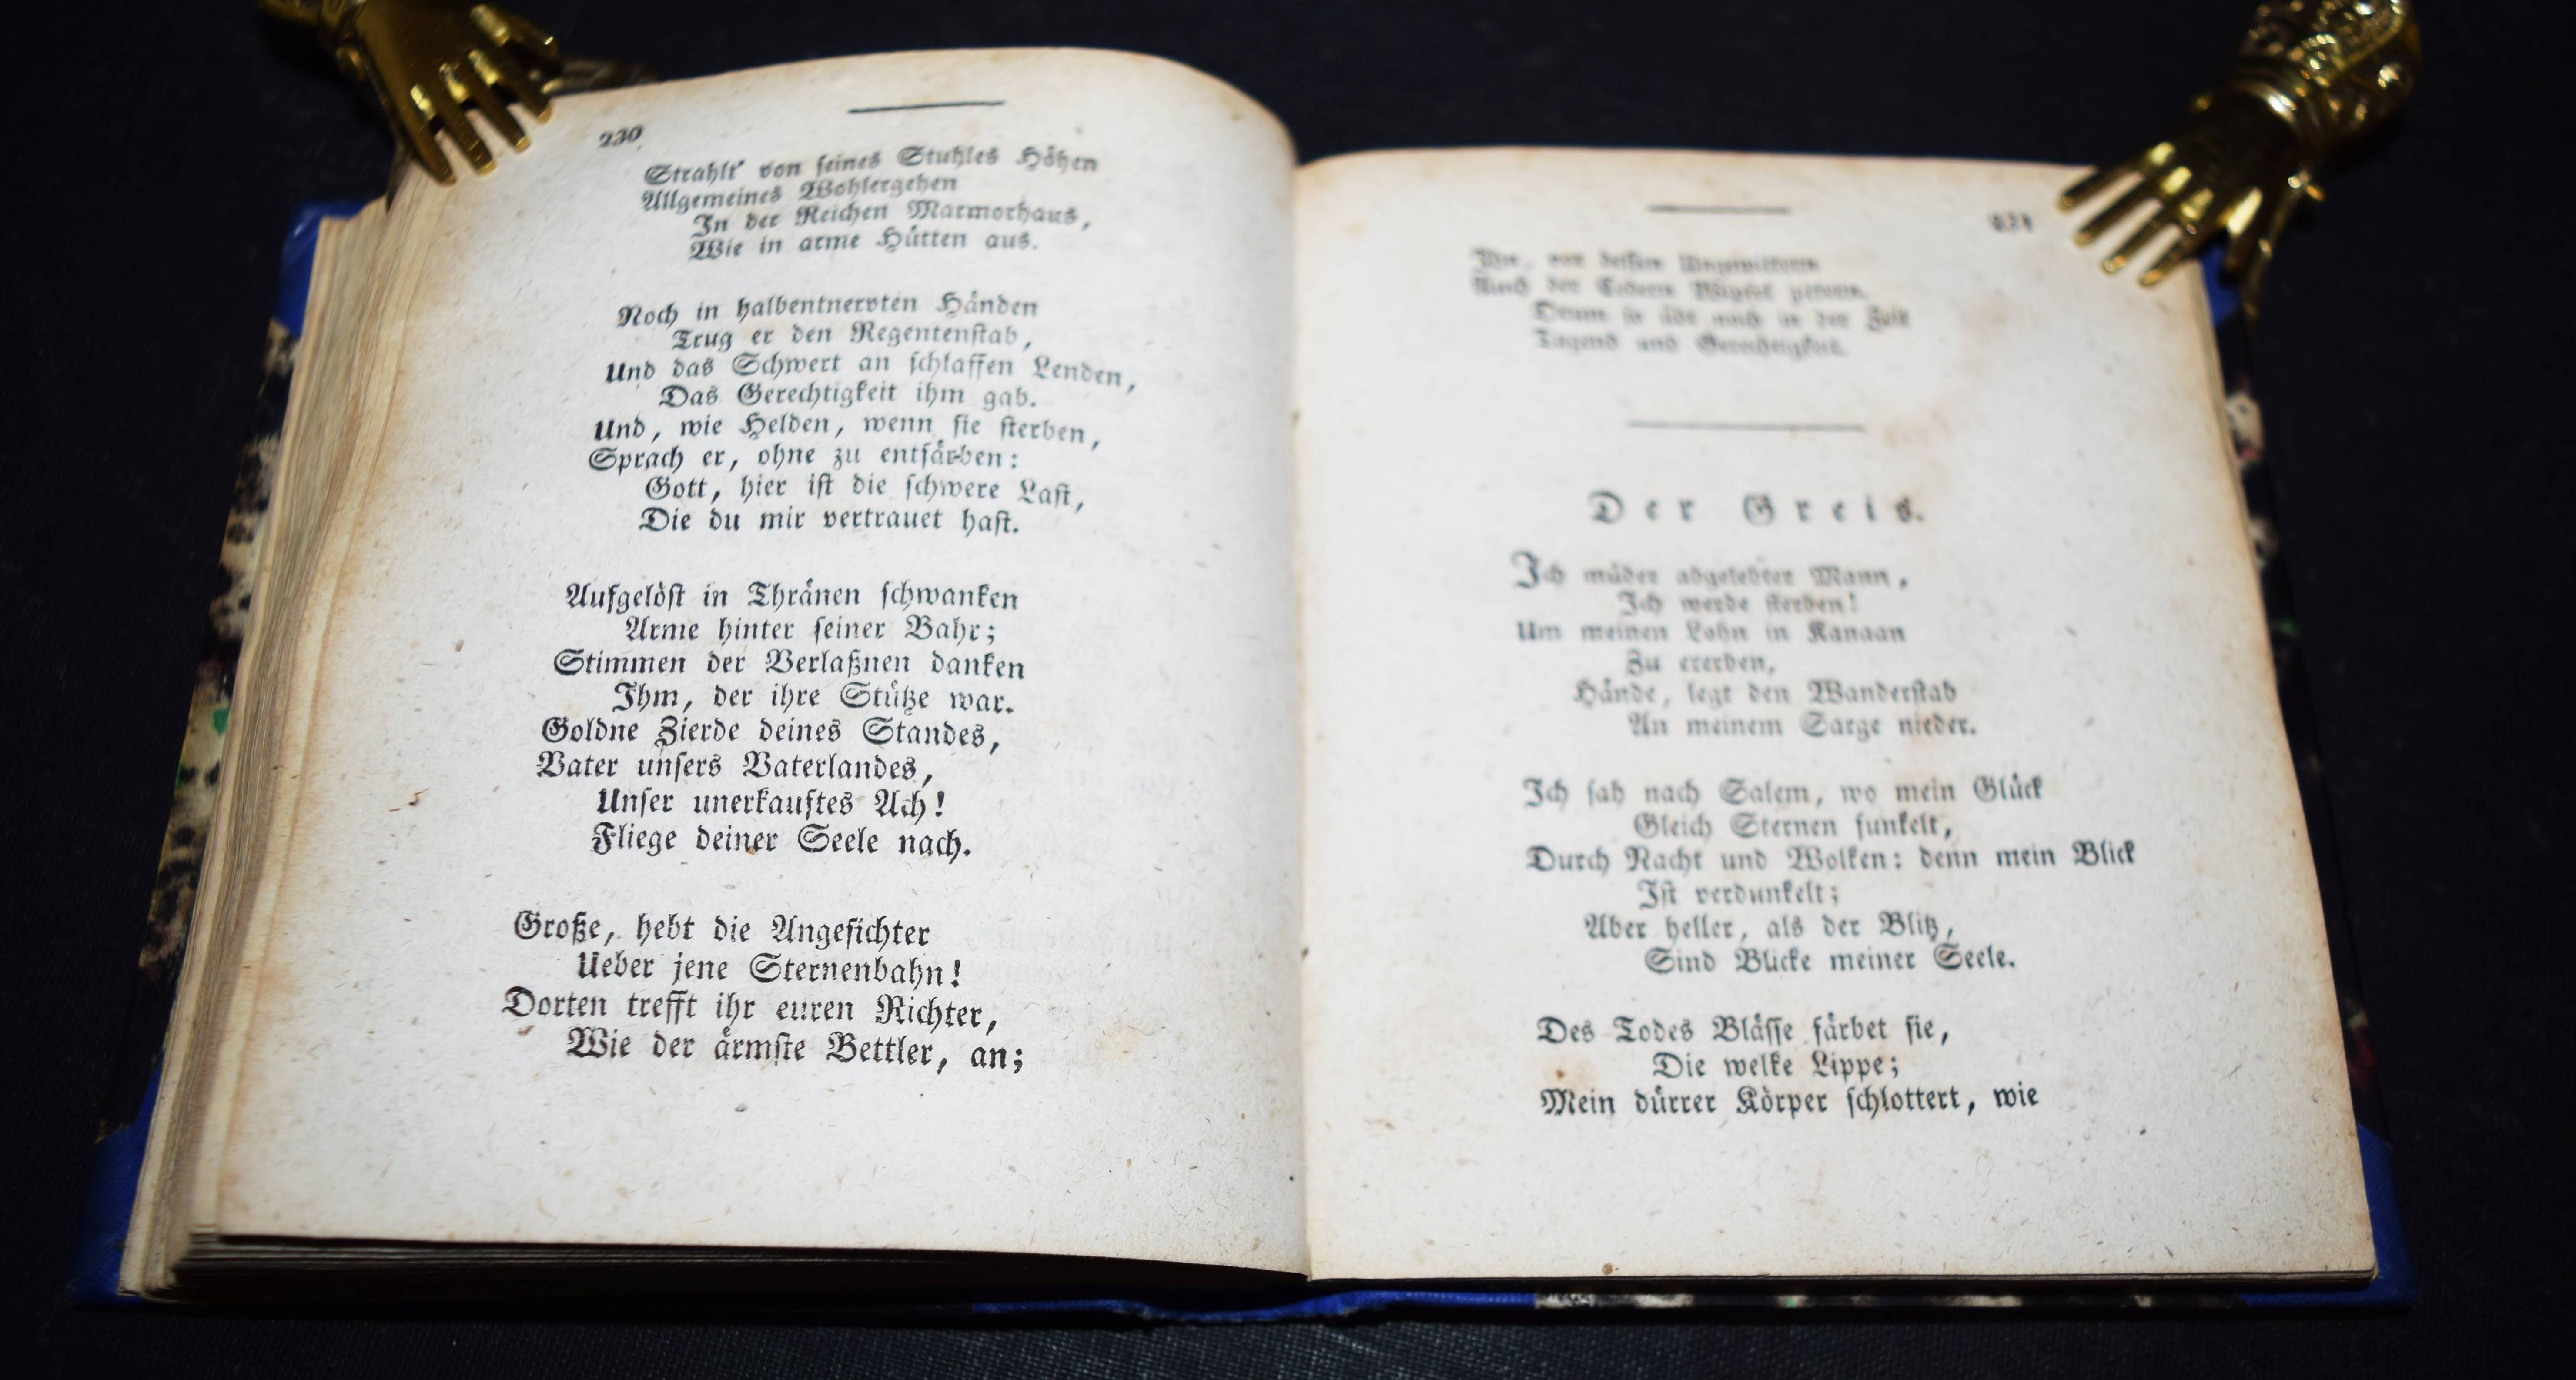 230
Strahlt' von seines Stuhles Höhen
Allgemeines Wohlergehen
In der Reichen Marmorhaus,
Wie in arme Hütten aus.
Noch in halbentnervten Händen
Trug er den Regentenstab,
Und das Schwert an schlaffen Lenden,
Das Gerechtigkeit ihm gab.
Und, wie Helden, wenn sie sterben,
Sprach er, ohne zu entfärben:
Gott, hier ist die schwere Last,
Die du mir vertrauet hast.
Aufgelöst in Thränen schwanken
Arme hinter seiner Bahr;
Stimmen der Verlaßnen danken
Ihm, der ihre Stütze war.
Goldne Zierde deines Standes,
Vater unsers Vaterlandes,
Unser unerkauftes Ach!
Fliege deiner Seele nach.
Große, hebt die Angesichter
Ueber jene Sternenbahn!
Dorten trefft ihr euren Richter,
Wie der ärmste Bettler, an;
231
Ihm, vor dessen Ungewittern
Auch der Cedern Wipfel zittern.
Drum so übt noch in der Zeit
Tugend und Gerechtigkeit.
Der Greis.
Ich müder abgelebter Mann,
Ich werde sterben!
Um meinen Lohn in Kanaan
Zu ererben,
Hände, legt den Wanderstab
An meinem Sarge nieder.
Ich sah nach Salem, wo mein Glück
Gleich Sternen funkelt,
Durch Nacht und Wolken: denn mein Blick
Ist verdunkelt;
Aber heller, als der Blitz,
Sind Blicke meiner Seele.
Des Todes Blässe färbet sie,
Die welke Lippe;
Mein dürrer Körper schlottert, wie